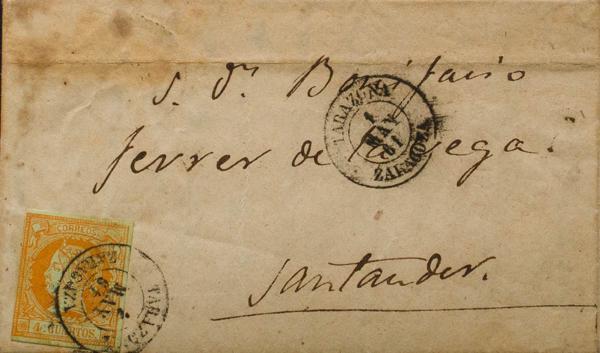 S. Dn. Bonifacio
Ferrer de la Vega.
Santander.
TARAZONA
1
MAY
61
ZARAGOZA
CORREOS
4 CUARTOS
TARAZONA
1
MAY
61
ZARAGOZA